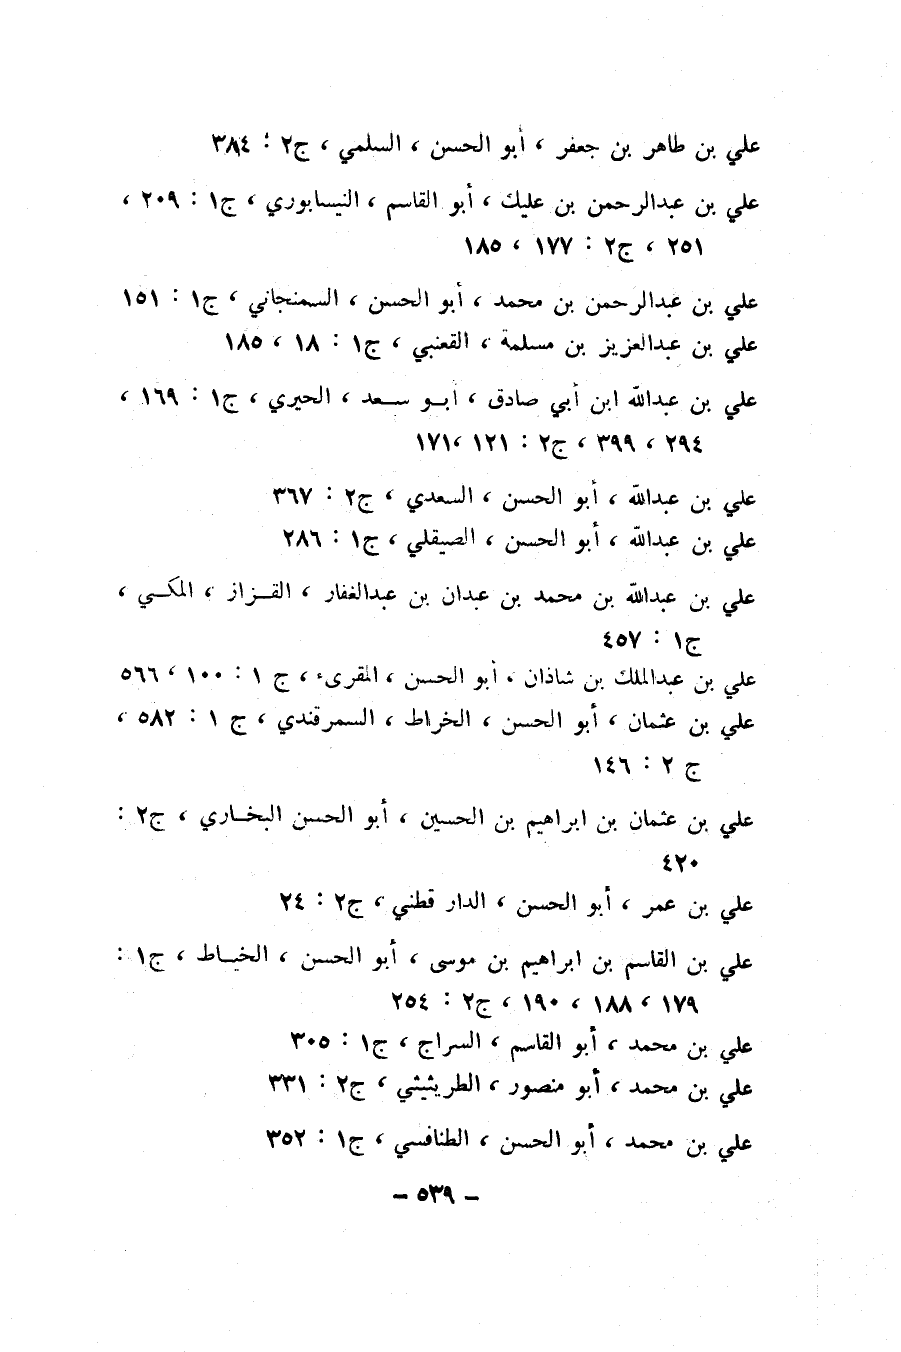 علي بن طاهر بن جعفر ، أبو الحسن ، السلمي ، ج٢ : ٣٨٤
علي بن عبدالرحمن بن عليك ، أبو القاسم ، النيسابوري ، ج١ : ٢٠٩ ،
٢٥١ ، ج٢ : ١٧٧ ، ١٨٥
علي بن عبدالرحمن بن محمد ، أبو الحسن ، السمنجاني ، ج١ : ١٥١
علي بن عبدالعزيز بن مسلمة ، القعنبي ، ج١ : ١٨ ، ١٨٥
علي بن عبدالله ابن أبي صادق ، أبو سعد ، الحيري ، ج١ : ١٦٩ ،
٢٩٤ ، ٣٩٩ ، ج٢ : ١٢١ ،١٧١
علي بن عبدالله ، أبو الحسن ، السعدي ، ج٢ : ٣٦٧
علي بن عبدالله ، أبو الحسن ، الصيقلي ، ج١ : ٢٨٦
علي بن عبدالله بن محمد بن عبدان بن عبدالغفار ، القزاز ، المكي ،
ج١ : ٤٥٧
علي بن عبدالملك بن شاذان ، أبو الحسن ، المقرىء ، ج ١ : ١٠٠ ، ٥٦٦
علي بن عثمان ، أبو الحسن ، الخراط ، السمرقندي ، ج ١ : ٥٨٢ ،
ج ٢ : ١٤٦
علي بن عثمان بن ابراهيم بن الحسين ، أبو الحسن البخاري ، ج٢ :
٤٢٠
علي بن عمر ، أبو الحسن ، الدار قطني ، ج٢ : ٢٤
علي بن القاسم بن ابراهيم بن موسى ، أبو الحسن ، الخياط ، ج١ :
١٧٩ ، ١٨٨ ، ١٩٠ ، ج٢ : ٢٥٤
علي بن محمد ، أبو القاسم ، السراج ، ج١ : ٣٠٥
علي بن محمد ، أبو منصور ، الطريثيثي ، ج٢ : ٣٣١
علي بن محمد ، أبو الحسن ، الطنافسي ، ج١ : ٣٥٢
– ٥٣٩ –